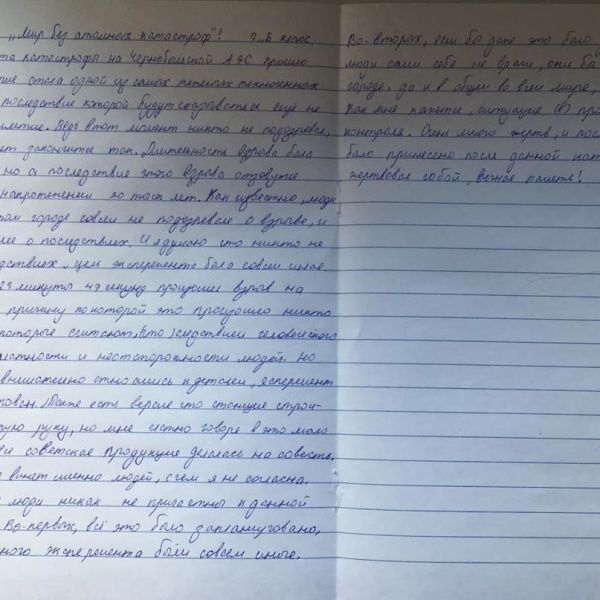 „Мир без атомных катастроф"! 9„Б класс.
та катастрофы на Чернобыльской АЭС прошло
стала одной из самых тяжелых техногенных
последствие которой будут сказываться ещё не
летие. Ведь в тот момент никто не подозревал,
ет закончится так. Длительность взрыва была
но а последствие этого взрыва отзовутся
напротежении 10 тысч лет. Как известно, люди
том городе совсем не подозревале о взрыве, и
лее о последствиях. И я думаю что никто не
дствиех, цель эксперемента была совсем иная.
23 минуты 47 секунд произошел взрыв на
причину по которой это произошло никто
которые считают, что следствием человеческого
и неосторожности людей. Но
отнолись к деталем, эксперемент
ован. Также есть версие что станцие строи-
ую руку, но мне чистно говоре в это мало
советское продукцие делалась на совесть.
винет именно людей, с чем я не согласна.
люди никак не причастны к данной
Во-первых, всё это было запланировано,
ного эксперемента были совсем иные.
Во-вторых, если бы даже это было
люди сами себе не враги, они бы
городе. да и в общем во всем мире,
Как мне кажется, ситуацие (в) про
контроле. Очень много жертв, и посл
было принесено после данной кат
жертвовал собой, вечноя память!